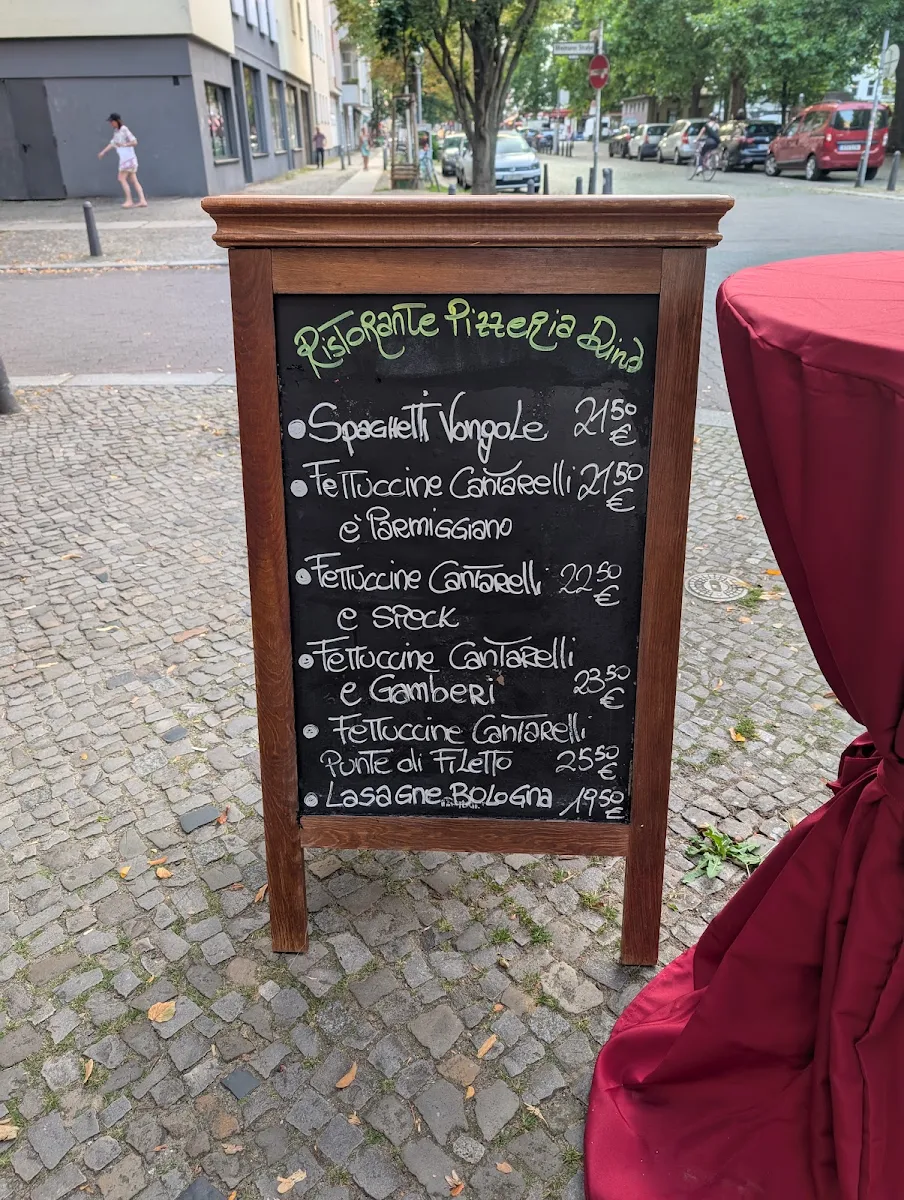 Ristorante Pizzeria Dina
Spaghetti Vongole 21 50 €
Fettuccine Cantarelli 21 50 €
e' Parmiggiano
Fettuccine Cantarelli 22 50 €
e Speck
Fettuccine Cantarelli
e Gamberi 23 50 €
Fettuccine Cantarelli
Punte di Filetto 25 50 €
Lasagne Bologna 19 50 €